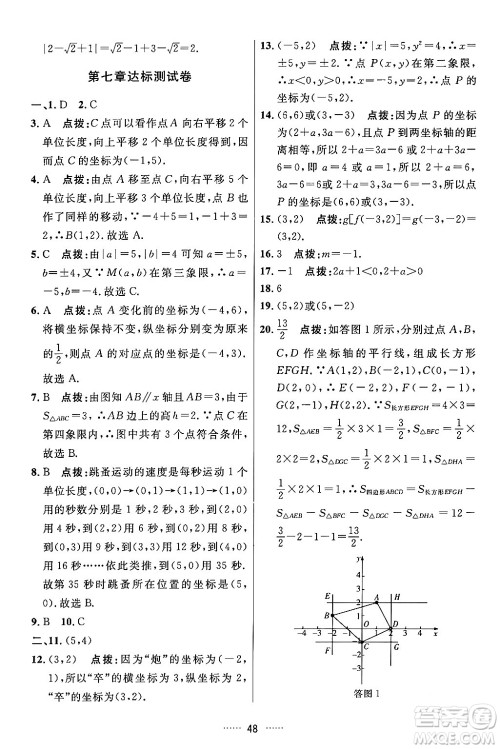 |2-√2+1|=√2-1+3-√2=2.
第七章达标测试卷
一、1. D 2. C
3. A 点拨:C点可以看作点A向右平移2个
单位长度,向上平移2个单位长度得到的,因
而点C的坐标为(-1,5).
4. A 点拨:由点A平移前后的坐标可知,点B也
作了同样的移动,∵-4+5=1,-1+3=2,
∴B(1,2).故选A.
5. C 点拨:由|a|=5,|b|=4可知a=±5,
b=±4.又∵M(a,b)在第三象限,∴a=-5,
b=-4.故选C.
6. A 点拨:点A变化前的坐标为(-4,6),
将横坐标保持不变,纵坐标分别变为原来
的1/2,则点A的对应点的坐标是(-4,3).
故选A.
7. B 点拨:由图知AB∥x轴且AB=3,由
S△ABC=3,∴AB上的高h=2.又∵点C在
第四象限内,∴图中4个点符合条件,
故选B.
8. B 点拨:跳蚤运动的速度是每秒运动1个
单位长度,(0,0)→(0,1)→(1,1)→(1,0)
用的秒数分别是1秒,2秒,3秒,到(2,0)
用4秒,到(2,2)用6秒,到(0,2)用8秒,
到(0,3)用9秒,到(3,3)用12秒,到(4,0)
用16秒……依次类推,到(5,0)用35秒.
故第35秒时跳蚤所在位置的坐标是
(5,0).故选B.
9. B 10. C
二、11. (5,4)
12. (3,2) 点拨:因为“炮”的坐标为(-2,
1),所以“卒”的横坐标为3,纵坐标为2,
“卒”的坐标为(3,2).
13. (-5,2) 点拨:∵|x|=5,y²=4,∴x=
±5,y=±2,∵点P在第二象限,
∴x<0,y>0,∴x=-5,y=2,∴点P的
坐标为(-5,2).
14. (6,6)或(3,-3) 点拨:∵点P到两
坐标轴的距离相等,∴|2+a|=|3a-
6|,所以2+a=3a-6或2+a=-(3a-
6),解得a=4或a=1.当a=4时,2+a=
6,3a-6=6;当a=1时,2+a=3,3a-6=
-3.∴点P的坐标为(6,6)或(3,-3).
15. (3,2) 点拨:g[f(-3,2)]=g(-3,
-2)=(3,2).
16. 3 点拨:m=-1.
17. -1 点拨:2a+1<0,2+a>0.
18. 6
19. (5,2)或(5,-2)
20. 13/2 点拨:如答图1,分别过点A,B,
C,D作坐标轴的平行线,组成长方形
EFGH.∵A(1,2),B(-2,1),C(0,-1),
D(2,0),∴S长方形EFGH=4×3=
12,S△AEB=1/2×3×1=3/2,S△BFC=1/2×2×
2=2,S△DGC=1/2×2×1=1,S△DHA=
1/2×2×1=1,∴S四边形ABCD=S长方形EFGH-
S△AEB-S△BFC-S△DGC-S△DHA=12-
3/2-2-1-1=13/2.
答图1
48